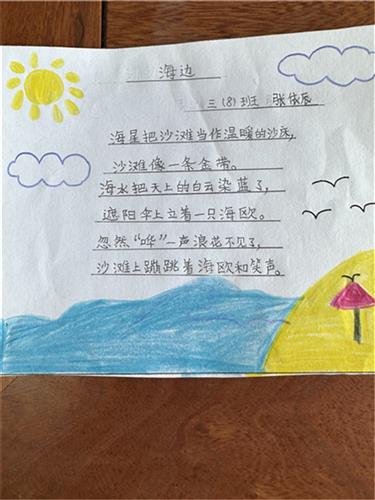 海边
三(8)班 张依辰
海星把沙滩当作温暖的沙床,
沙滩像一条金带。
海水把天上的白云染蓝了,
遮阳伞上立着一只海欧。
忽然“哗”一声浪花不见了,
沙滩上蹦跳着海欧和笑声。